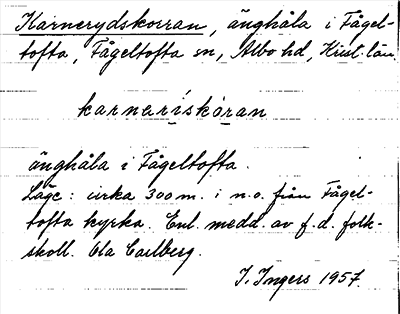 Kärnerydskorran, änghåla i Fågel-
tofta, Fågeltofta sn, Albo hd, Krist. län.
karnarískóran
änghåla i Fågeltofta.
Läge: cirka 300 m. i n.o. från Fågel-
tofta kyrka. Enl. medd. av f.d. folk-
skoll. Ola Carlberg.
I. Ingers 1957.